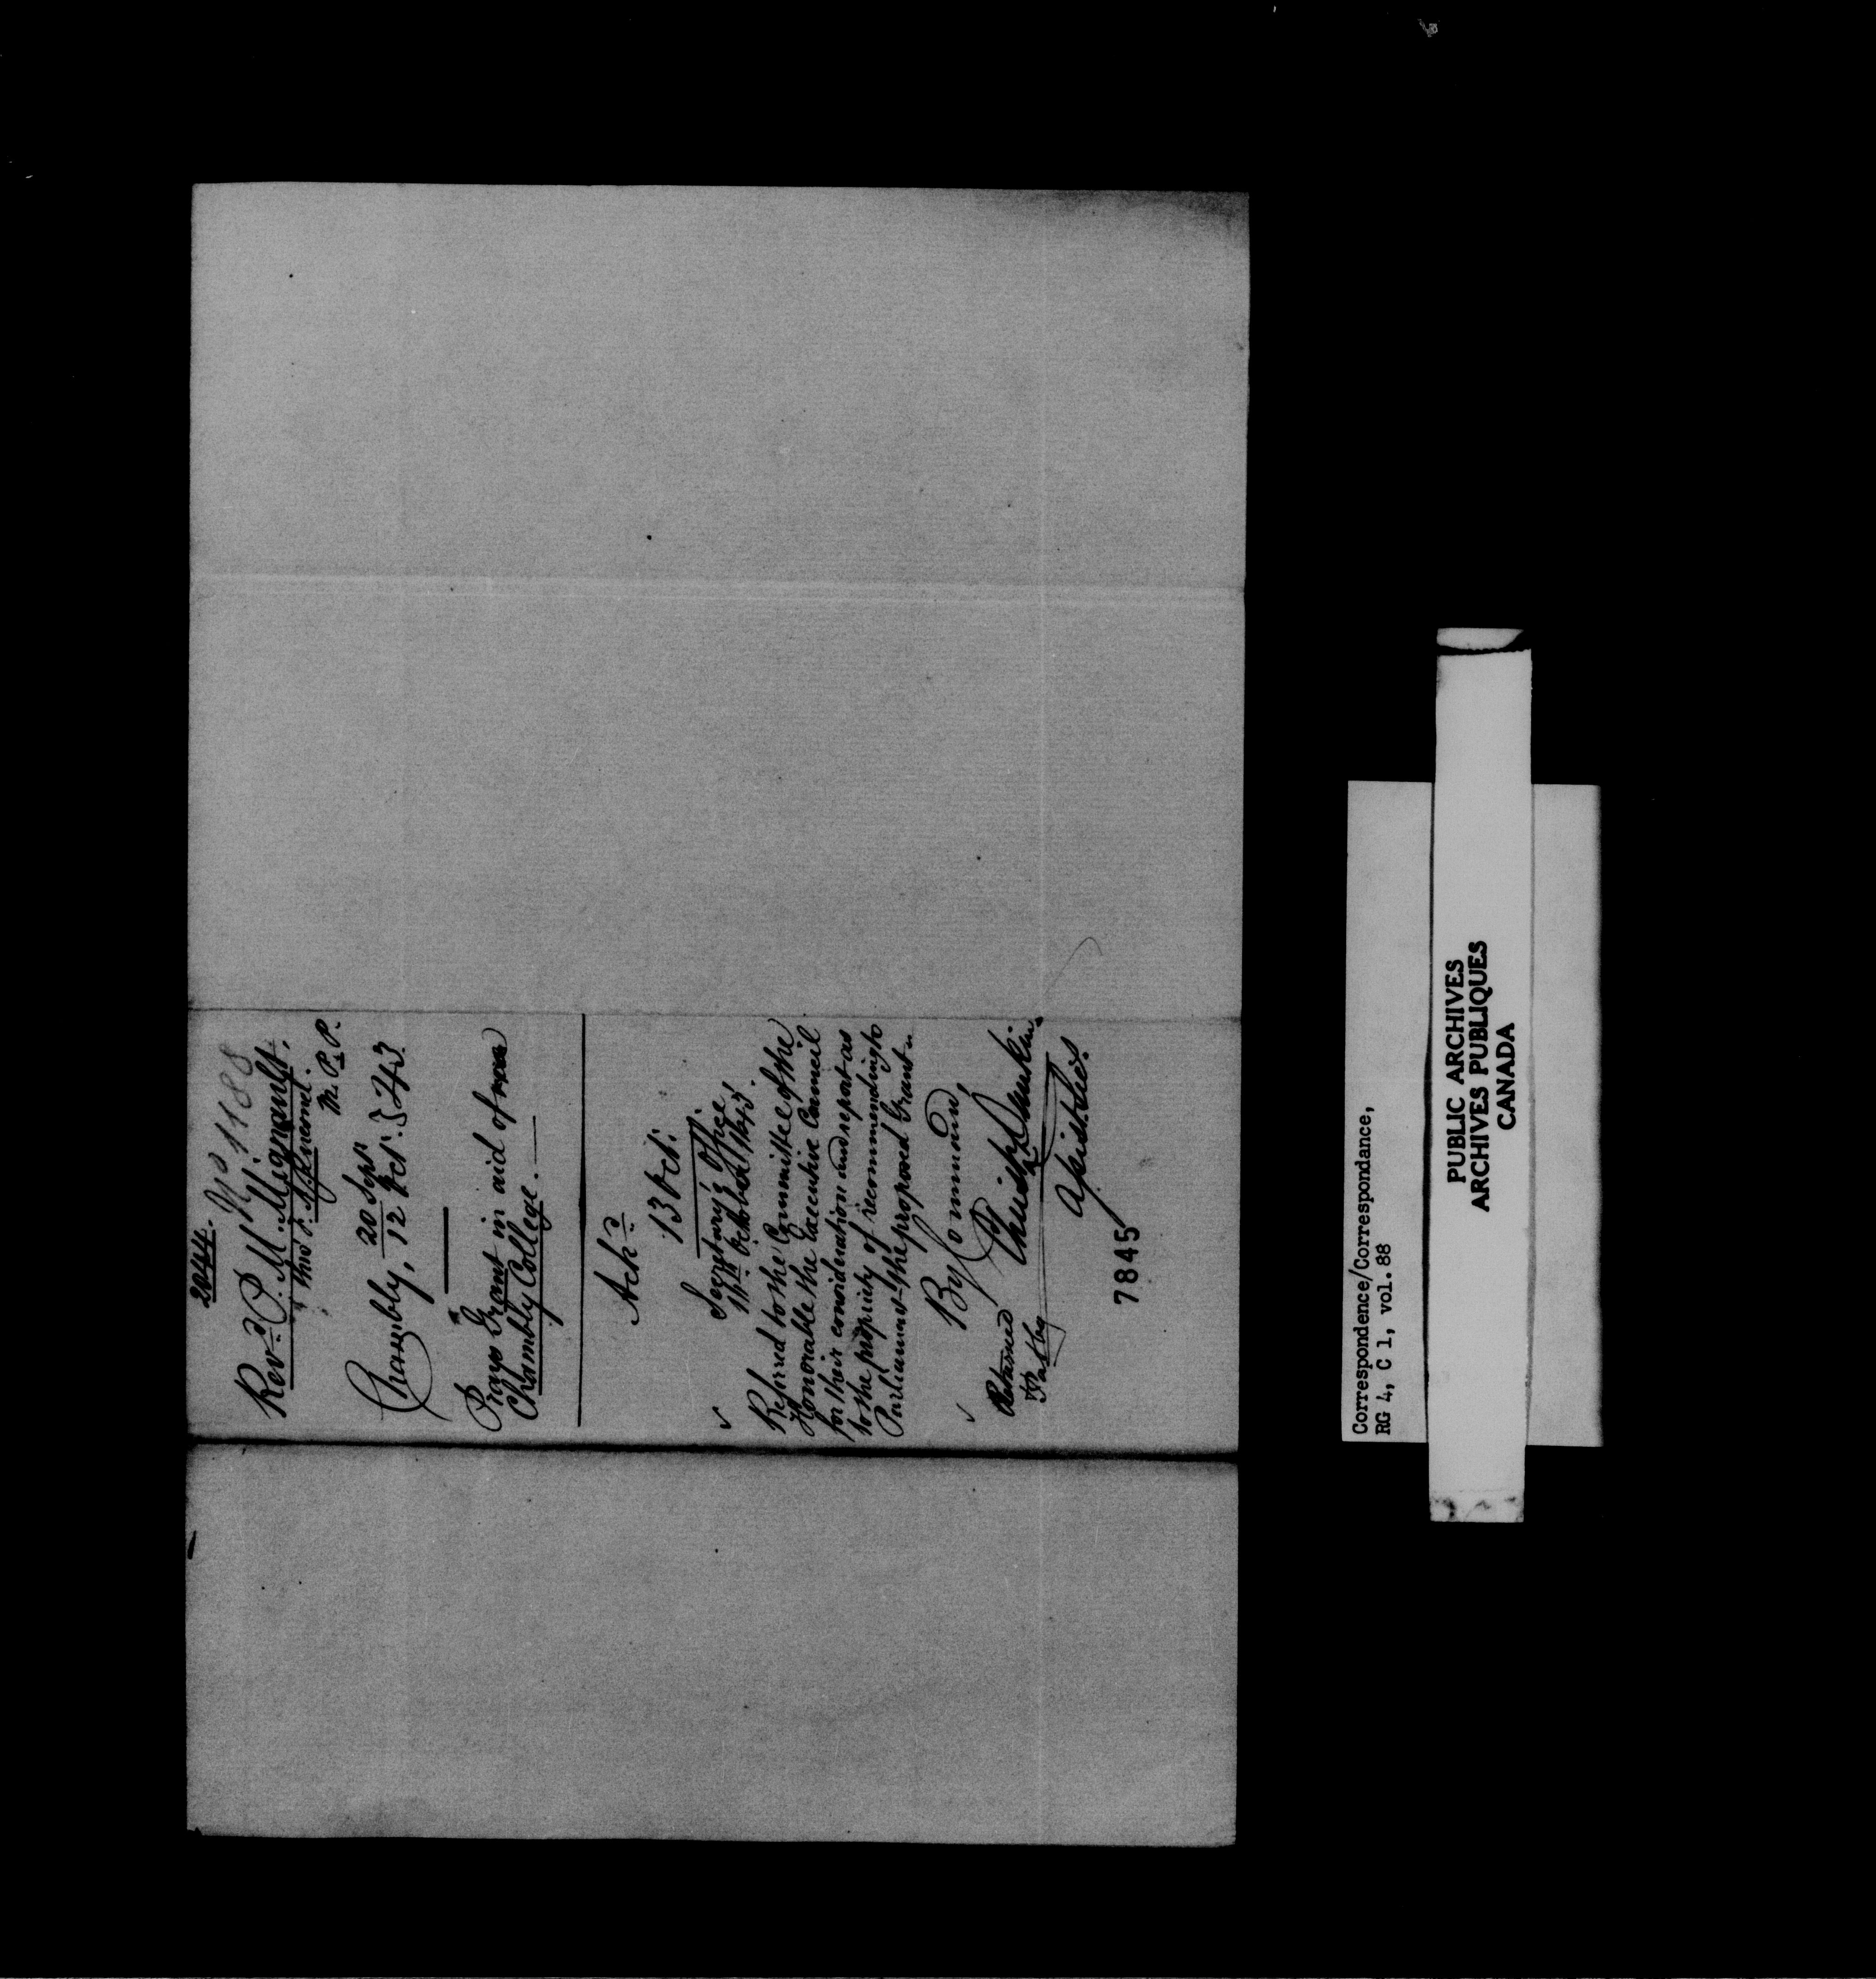 2044. No 1188
Revd. P. M. Mignault.
thro'
M. P. P.
Chambly, 20 Sept.
12 Oct. } 43
Prays Grant in aid of
Chambly College.
Ackd.
13 Oct.
Secretary's Office,
October 1843.
Referred to the Committee of the
Honorable the Executive Council
for their consideration and report as
to the propriety of recommending to
Parliament the proposed Grant
By Command,
Christr Dunkin
Returned
Asst. Sec.
7845
Correspondence/Correspondance,
RG 4, C 1, vol. 88
PUBLIC ARCHIVES
ARCHIVES PUBLIQUES
CANADA